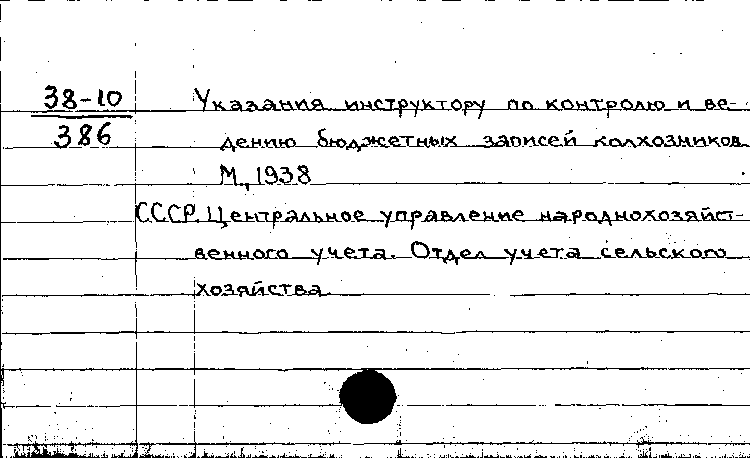 38-10
386
Указания инструктору по контролю и ве-
дению бюджетных записей колхозников
М., 1938
СССР. Центральное управление народнохозяйст-
венного учета. Отдел учета сельского
хозяйства.